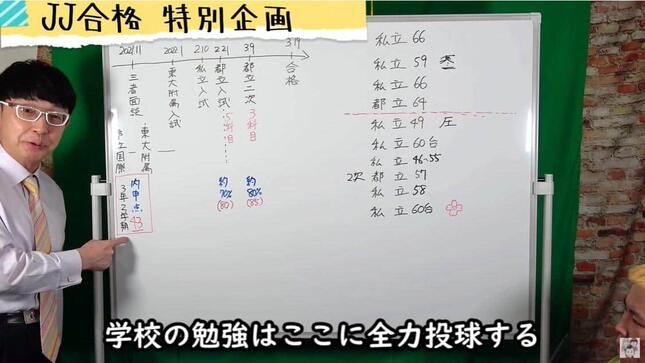 JJ合格 特別企画
2021.11
2022.1
2.10
2.21
3.9
3.19
三者面談
東大附属入試
私立入試
都立入試
都立二次
合格
5科目
3科目
東大附属
市立国際
内申点 43
3年2学期
約70%
(80)
約80%
(85)
私立 66
私立 59
私立 66
都立 64
私立 49 圧
私立 60台
私立 46-55
2次 都立 57
私立 58
私立 60台
学校の勉強はここに全力投球する